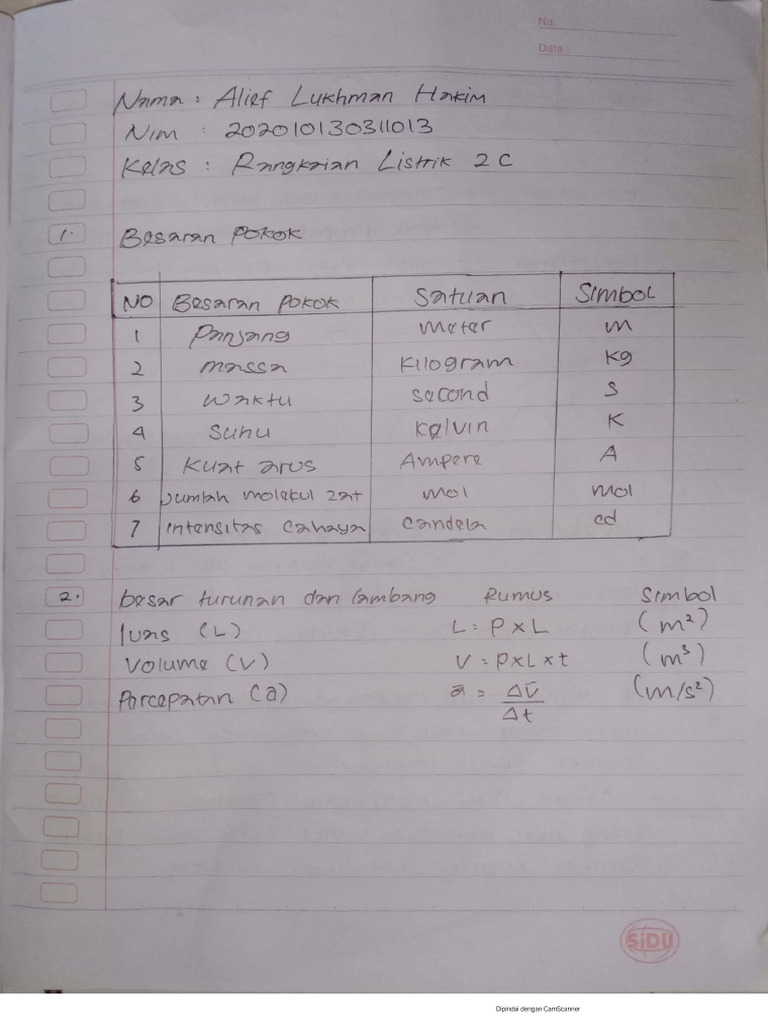 No.
Date :
Nama : Alief Lukhman Hakim
Nim : 202010130311013
Kelas : Rangkaian Listrik 2 C
1. Besaran Pokok
NO Besaran Pokok Satuan Simbol
1 Panjang meter m
2 massa Kilogram Kg
3 waktu second s
4 Suhu Kelvin K
5 Kuat arus Ampere A
6 Jumlah molekul zat mol mol
7 intensitas cahaya candela cd
2. besar turunan dan lambang Rumus Simbol
luas (L) L = P x L (m²)
Volume (V) V = P x L x t (m³)
Percepatan (a) a̅ = Δv̅/Δt (m/s²)
SiDU
Dipindai dengan CamScanner